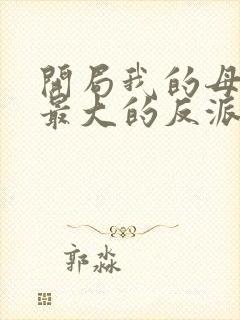 開局我的母
最大的反派
郭淼